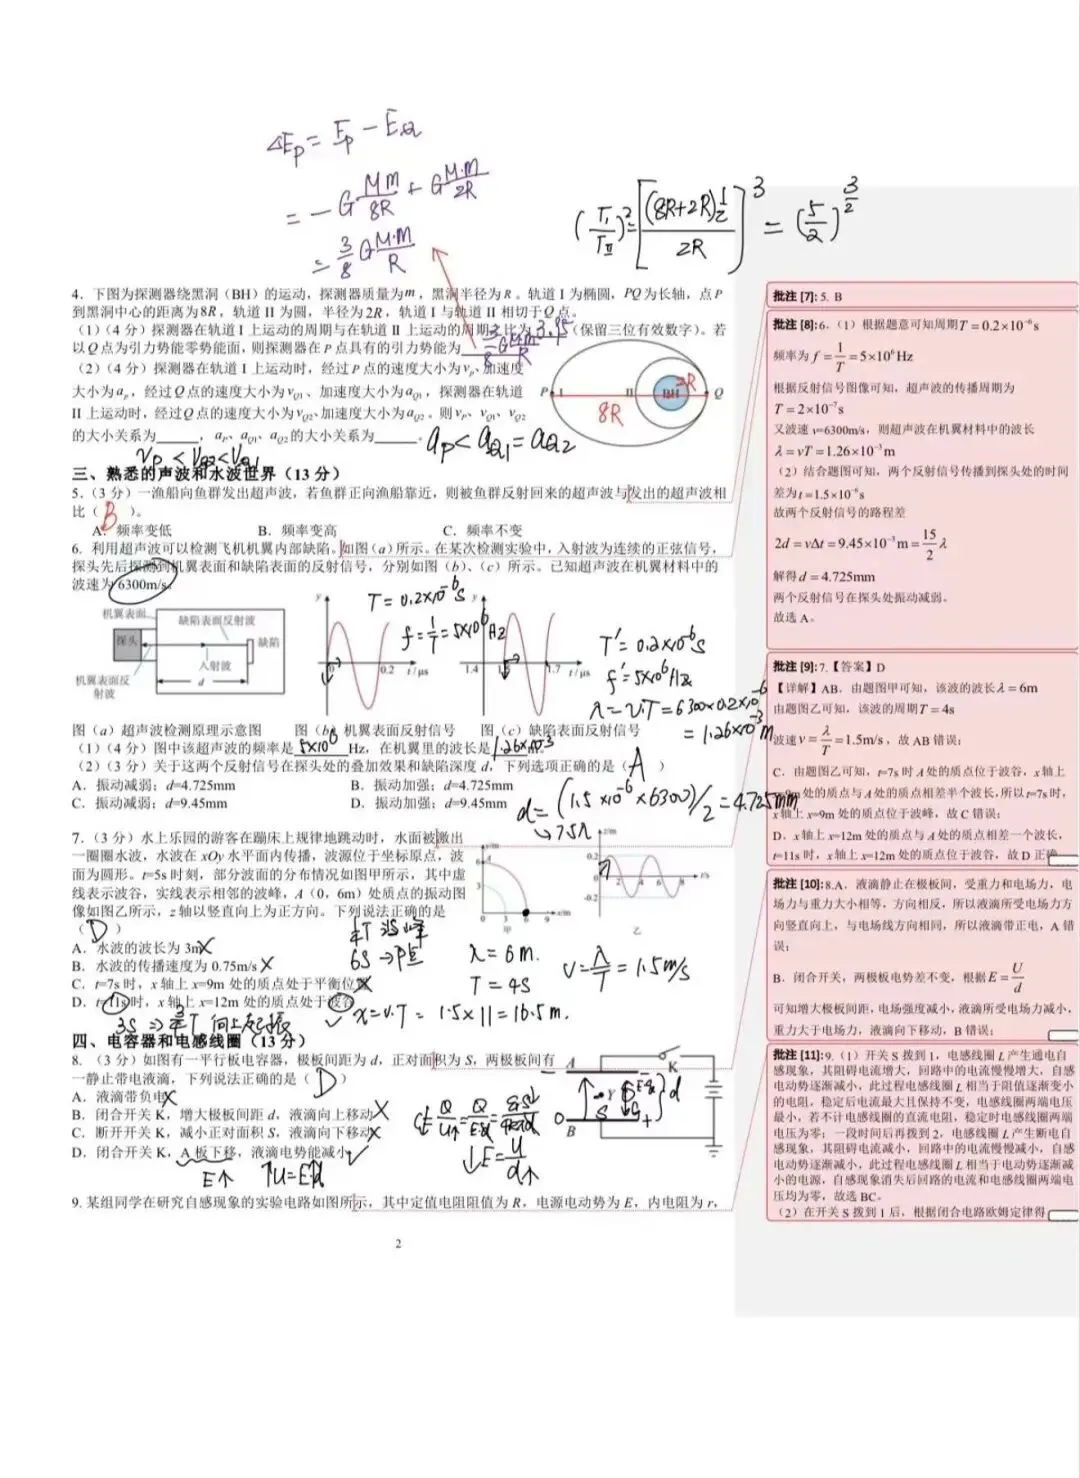 ΔEp = Ep - EQ
= -G Mm/8R + G M·m/2R
= 3/8 G M·m/R
(TⅠ/TⅡ)² = [(8R+2R)½ / 2R]³ = (5/2)^(3/2)
4．下图为探测器绕黑洞（BH）的运动，探测器质量为m，黑洞半径为R。轨道 I 为椭圆，PQ 为长轴，点 P
到黑洞中心的距离为8R，轨道 II 为圆，半径为2R，轨道 I 与轨道 II 相切于 Q 点。
（1）（4 分）探测器在轨道 I 上运动的周期与在轨道 II 上运动的周期之比为 3.95（保留三位有效数字）。若
以 Q 点为引力势能零势能面，则探测器在 P 点具有的引力势能为 3/8 G Mm/R
（2）（4 分）探测器在轨道 I 上运动时，经过 P 点的速度大小为vP、加速度
大小为aP，经过 Q 点的速度大小为vQ1、加速度大小为aQ1，探测器在轨道
II 上运动时，经过 Q 点的速度大小为vQ2、加速度大小为aQ2。则vP、vQ1、vQ2
的大小关系为______，aP、aQ1、aQ2的大小关系为______。 aP<aQ1=aQ2
vP<vQ2<vQ1
P I II BH 2R Q
8R
三、熟悉的声波和水波世界（13 分）
5．（3 分）一渔船向鱼群发出超声波，若鱼群正向渔船靠近，则被鱼群反射回来的超声波与发出的超声波相
比（ B ）。
A．频率变低 B．频率变高 C．频率不变
6．利用超声波可以检测飞机机翼内部缺陷。如图（a）所示。在某次检测实验中，入射波为连续的正弦信号，
探头先后探测到机翼表面和缺陷表面的反射信号，分别如图（b）、（c）所示。已知超声波在机翼材料中的
波速为 6300m/s。
机翼表面
缺陷表面反射波
探头
缺陷
入射波
机翼表面反
射波
d
y
0 0.2 t/μs
T=0.2×10⁻⁶s
f=1/T=5×10⁶Hz
y
1.4 1.7 t/μs
T'=0.2×10⁻⁶s
f'=5×10⁶Hz
λ=v·T=6300×0.2×10⁻⁶
=1.26×10⁻³m
图（a）超声波检测原理示意图 图（b）机翼表面反射信号 图（c）缺陷表面反射信号
（1）（4 分）图中该超声波的频率是 5×10⁶ Hz，在机翼里的波长是 1.26×10⁻³
（2）（3 分）关于这两个反射信号在探头处的叠加效果和缺陷深度 d，下列选项正确的是（ A ）
A．振动减弱；d=4.725mm B．振动加强；d=4.725mm
C．振动减弱；d=9.45mm D．振动加强；d=9.45mm
d=(1.5×10⁻⁶×6300)/2=4.725mm
→7.5λ
7．（3 分）水上乐园的游客在蹦床上规律地跳动时，水面被激出
一圈圈水波，水波在 xOy 水平面内传播，波源位于坐标原点，波
面为圆形。t=5s 时刻，部分波面的分布情况如图甲所示，其中虚
线表示波谷，实线表示相邻的波峰，A（0，6m）处质点的振动图
像如图乙所示，z 轴以竖直向上为正方向。下列说法正确的是
（ D ）
y/m
6 A
3
0 3 6 9 x/m
甲
z/m
0.2
0 2 4 6 8 t/s
-0.2
乙
A．水波的波长为 3m ×
B．水波的传播速度为 0.75m/s ×
C．t=7s 时，x 轴上 x=9m 处的质点处于平衡位置 ×
D．t=11s 时，x 轴上 x=12m 处的质点处于波谷 ✓
λ=6m.
T=4s
v=λ/T=1.5m/s
x=v·T=1.5×11=16.5m.
四、电容器和电感线圈（13 分）
8．（3 分）如图有一平行板电容器，极板间距为 d，正对面积为 S，两极板间有
一静止带电液滴，下列说法正确的是（ D ）
A．液滴带负电 ×
B．闭合开关 K，增大极板间距 d，液滴向上移动 ×
C．断开开关 K，减小正对面积 S，液滴向下移动 ×
D．闭合开关 K，A 板下移，液滴电势能减小 ✓
E↑ ↑U=E·d
↓E=U/d↑
A K B
9. 某组同学在研究自感现象的实验电路如图所示，其中定值电阻阻值为 R，电源电动势为 E，内电阻为 r，
2
批注 [7]: 5. B
批注 [8]: 6.（1）根据题意可知周期T=0.2×10⁻⁶s
频率为 f=1/T=5×10⁶Hz
根据反射信号图像可知，超声波的传播周期为
T=2×10⁻⁷s
又波速 v=6300m/s，则超声波在机翼材料中的波长
λ=vT=1.26×10⁻³m
（2）结合题图可知，两个反射信号传播到探头处的时间
差为t=1.5×10⁻⁶s
故两个反射信号的路程差
2d=vΔt=9.45×10⁻³m=15/2 λ
解得d=4.725mm
两个反射信号在探头处振动减弱。
故选 A。
批注 [9]: 7.【答案】D
【详解】AB．由题图甲可知，该波的波长λ=6m
由题图乙可知，该波的周期T=4s
波速v=λ/T=1.5m/s，故 AB 错误；
C．由题图乙可知，t=7s 时 A 处的质点位于波谷，x 轴上
x=9m 处的质点与 A 处的质点相差半个波长，所以 t=7s 时，
x 轴上 x=9m 处的质点位于波峰，故 C 错误；
D．x 轴上 x=12m 处的质点与 A 处的质点相差一个波长，
t=11s 时，x 轴上 x=12m 处的质点位于波谷，故 D 正确
批注 [10]: 8.A．液滴静止在极板间，受重力和电场力，电
场力与重力大小相等，方向相反，所以液滴所受电场力方
向竖直向上，与电场线方向相同，所以液滴带正电，A 错
误；
B．闭合开关，两极板电势差不变，根据E=U/d
可知增大极板间距，电场强度减小，液滴所受电场力减小，
重力大于电场力，液滴向下移动，B 错误；
批注 [11]: 9.（1）开关 S 拨到 1，电感线圈 L 产生通电自
感现象，其阻碍电流增大，回路中的电流慢慢增大，自感
电动势逐渐减小，此过程电感线圈 L 相当于阻值逐渐变小
的电阻，稳定后电流最大且保持不变，电感线圈两端电压
最小，若不计电感线圈的直流电阻，稳定时电感线圈两端
电压为零；一段时间后再拨到 2，电感线圈 L 产生断电自
感现象，其阻碍电流减小，回路中的电流慢慢减小，自感
电动势逐渐减小，此过程电感线圈 L 相当于电动势逐渐减
小的电源，自感现象消失后回路的电流和电感线圈两端电
压均为零，故选 BC。
（2）在开关 S 拨到 1 后，根据闭合电路欧姆定律得